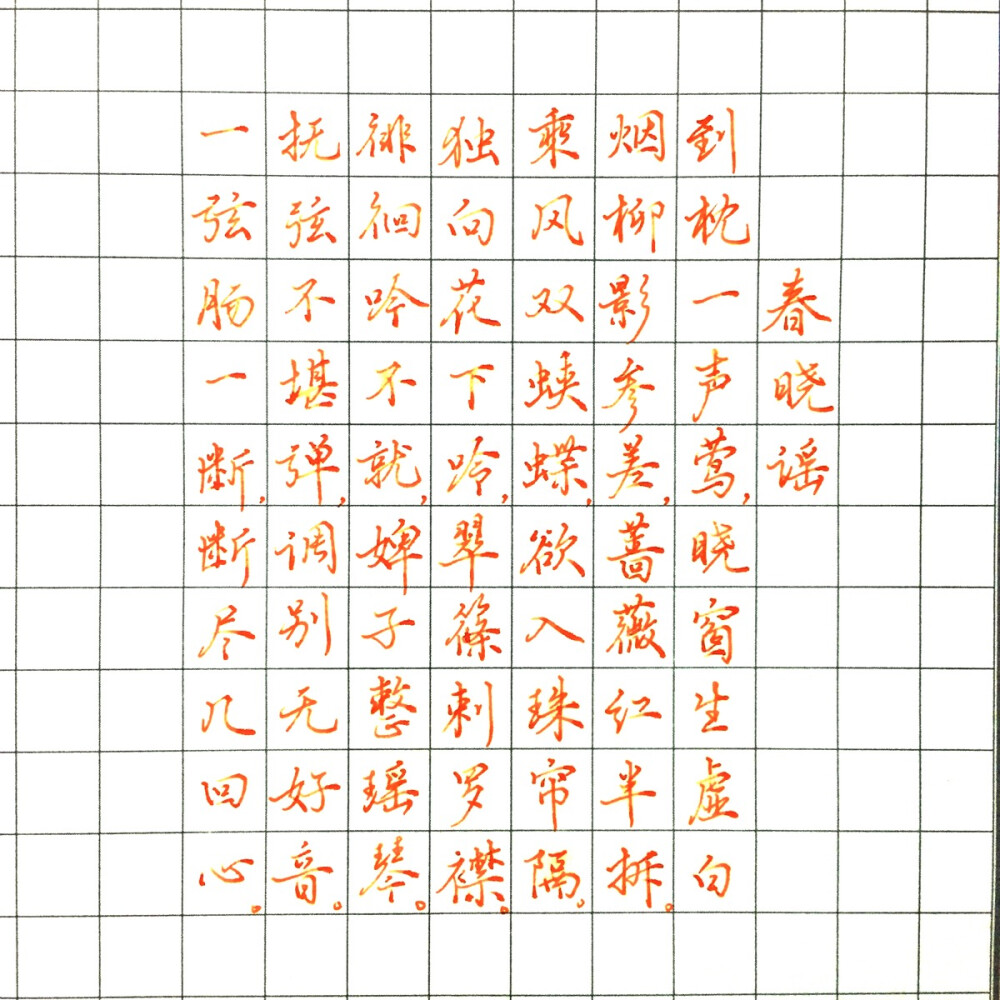 春晓谣
到枕一声莺,晓窗生虚白
烟柳影参差,蔷薇红半拆。
乘风双蛱蝶,欲入珠帘隔。
独向花下吟,翠篠刺罗襟。
徘徊吟不就,婢子整瑶琴。
抚弦不堪弹,调别无好音。
一弦肠一断,断尽几回心。